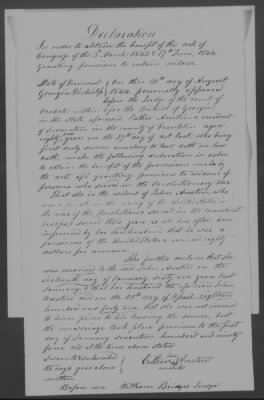 Declaration
In order to obtain the benefit of the acts of
Congress of the 3 March 1843 & 17th June, 1844.
Granting pensions to certain widows.
State of Vermont } On this 14th day of August
Georgia District } 1844. personally appeared
before the Judge of the court of
Probate within & for the District of Georgia
in the state aforesaid Esther Austin a resident
of Swanton in the county of Franklin aged
eighty years on the 29th of last who being
first duly sworn according to law doth on her
oath, make the following declaration in order
to obtain the benefit of the provisions made by
the acts of granting pensions to widows of
persons who served in the Revolutionary War
That she is the widow of John Austin, who
was a private in the army of the United States in
the war of the Revolution served in the
troops some three years as she has often been
informed by her said husband that he was a
pensioner of the United States at eighty
dollars per annum.
She further declares that she
was married to the said John Austin on the
sixteenth day of January sixty one years last
January & that her husband the aforesaid John
Austin died on the 21st day of April eighteen
hundred and forty one, that she was not married
to him prior to his leaving the service, but
the marriage took place previous to the first
day of January seventeen hundred and ninety
four viz at the time above stated
Sworn to & subscribed
the day & year above
written
her
Esther X Austin
mark
Before me William Bridges Judge